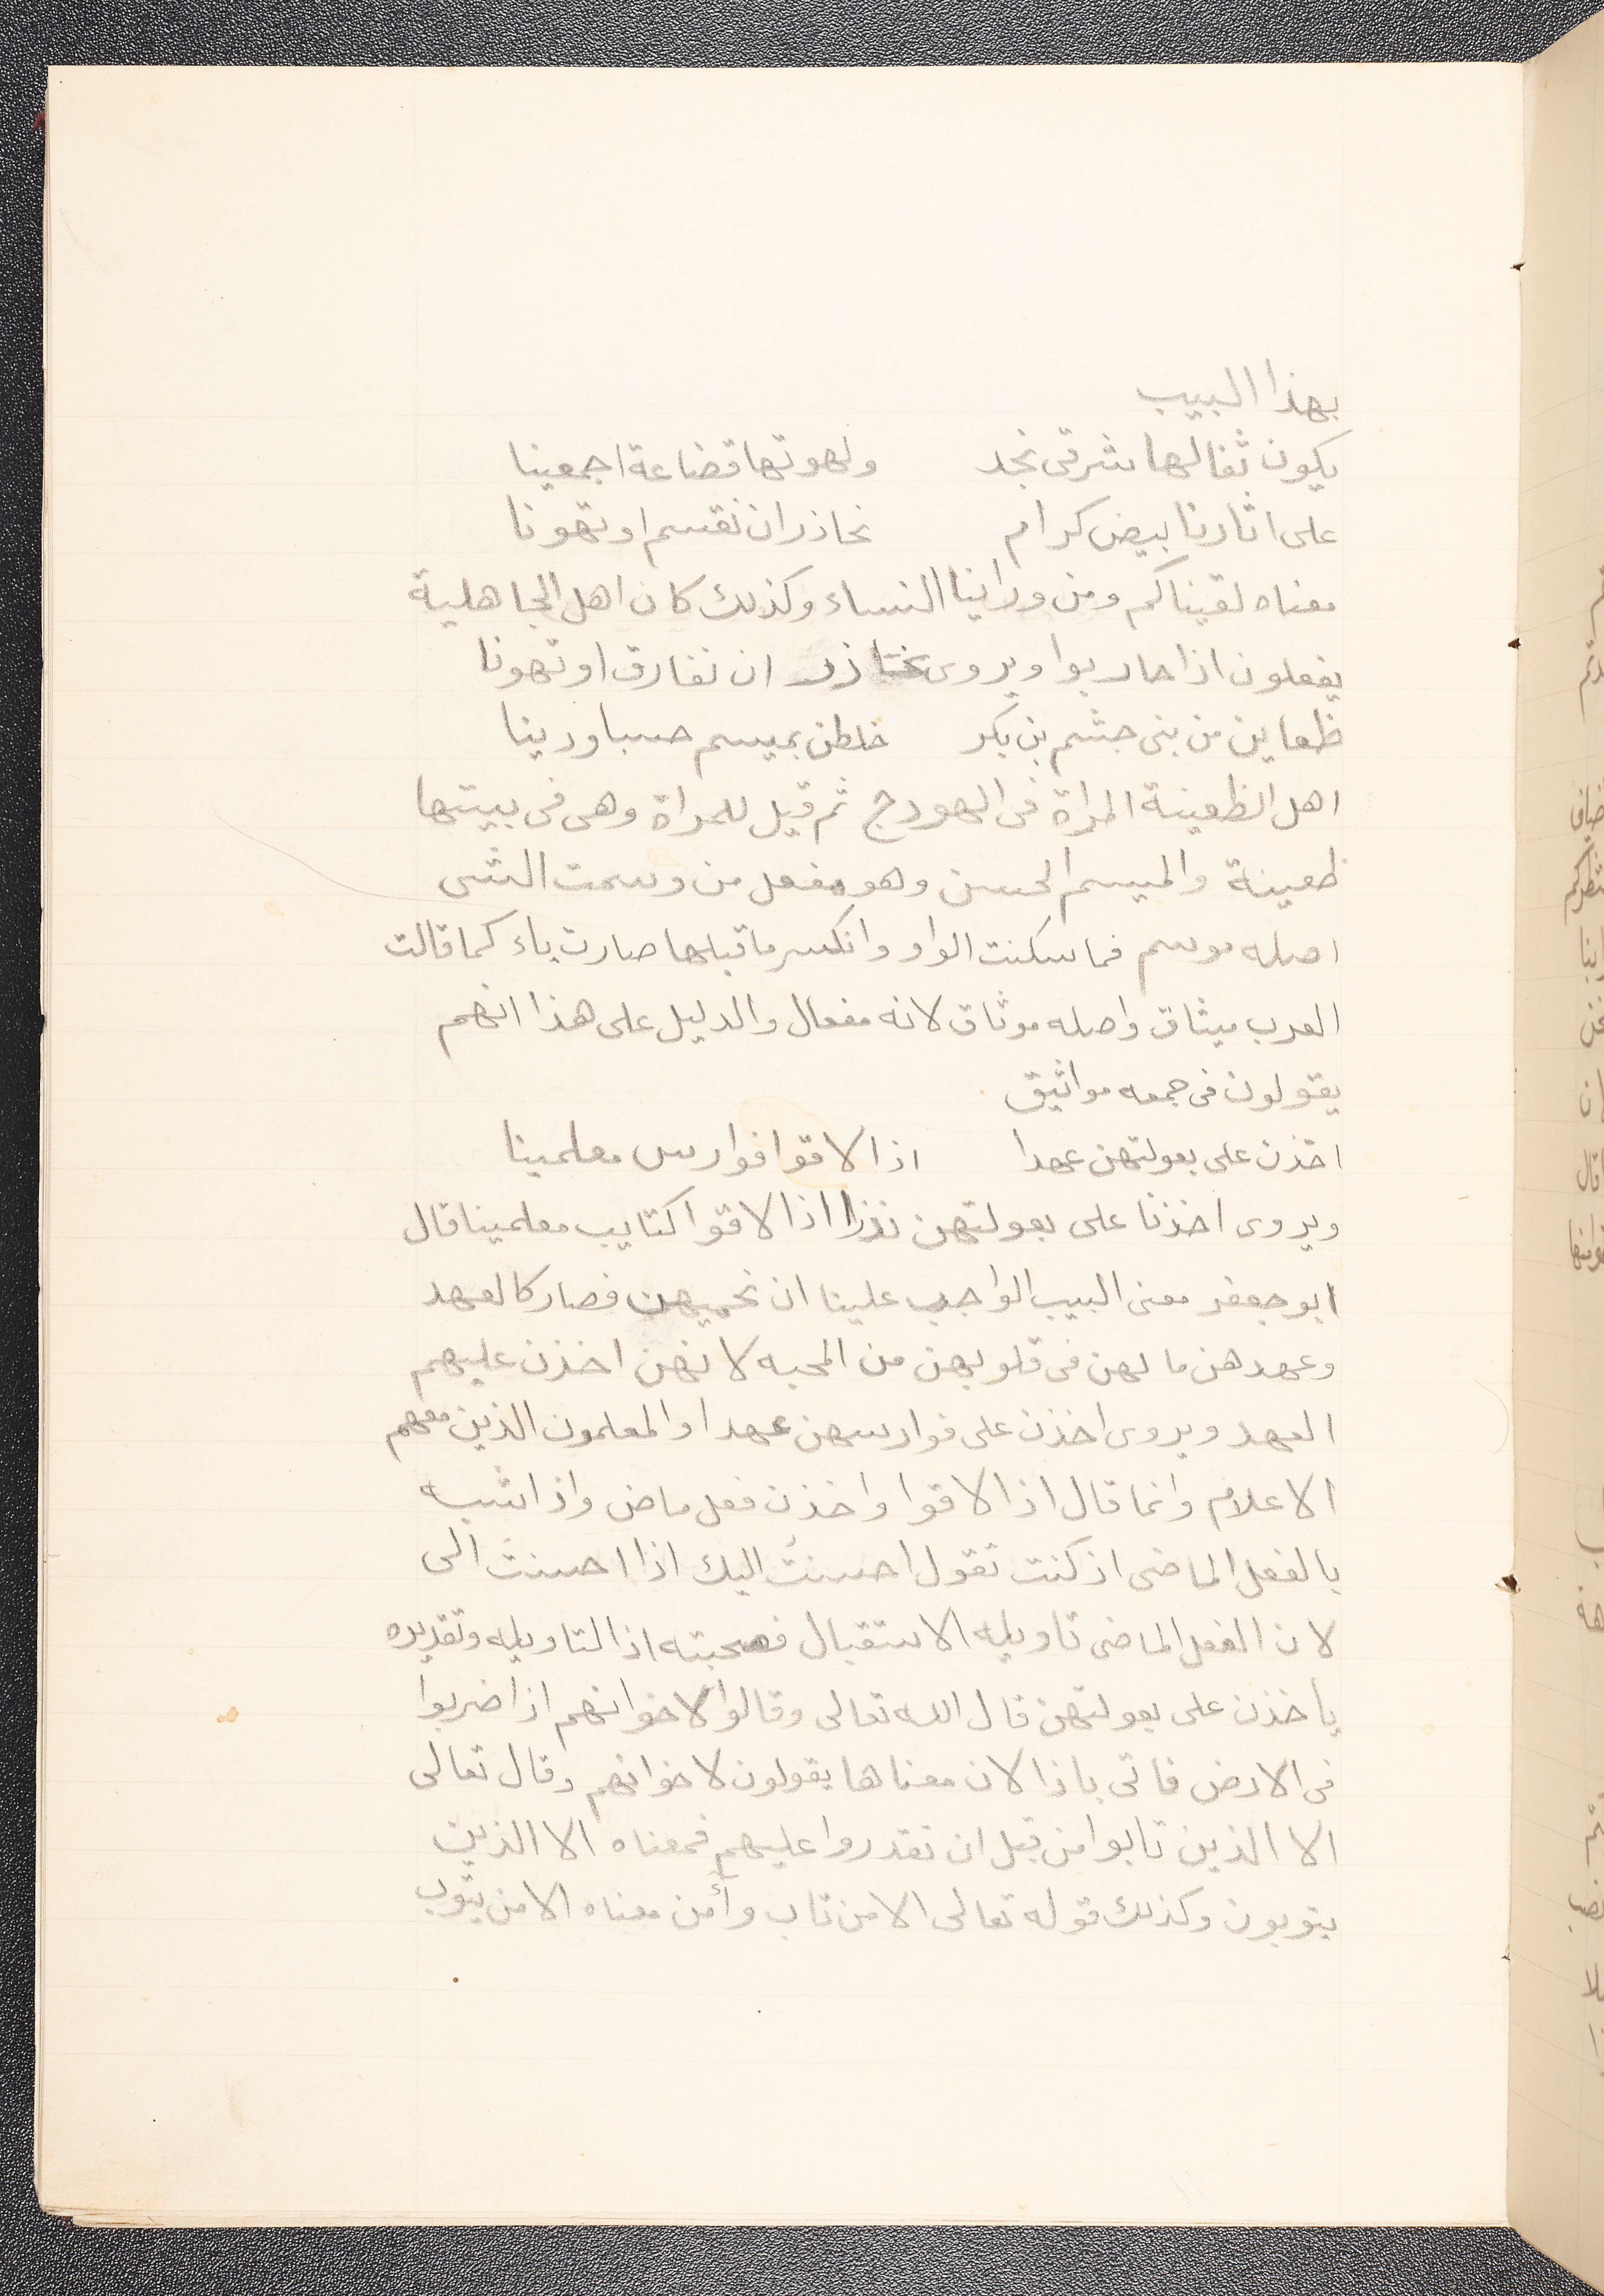 بهذا البيب
يكون ثفالها شرقى نجد ولهوتها قضاعة اجمعينا
على اثارنا بيض كرام نحاذر ان نقسم او تهونا
معناه لقيناكم ومن وراينا النساء وكذلك كان اهل الجاهلية
يفعلون اذا حاربوا ويروى نحاذر ان نفارق او تهونا
ظعاين من بنى جشم بن بكر خلطن بميسم حسبا ودينا
اهل الظعينة المراة فى الهودج ثم قيل للمراة وهى فى بيتها
ظعينة والميسم الحسن وهو مفعل من وسمت الشى
اصله موسم فما سكنت الواو وانكسر ما قبلها صارت ياء كما قالت
العرب ميثاق واصله موثاق لانه مفعال والدليل على هذا انهم
يقولون فى جمعه مواثيق
اخذن على بعولتهن عهدا اذا لاقوا فوارس معلمينا
ويروى اخذنا على بعولتهن نذرا اذا لاقوا كتايب معلمينا قال
ابو جعفر معنى البيب الواجب علينا ان نحميهن فصار كالعهد
وعهدهن ما لهن فى قلوبهن من المحبه لانهن اخذن عليهم
العهد ويروى اخذن على فوارسهن عهدا والمعلمون الذين معهم
الاعلام وانما قال اذا لاقوا واخذن فعل ماض واذا شبه
بالفعل الماضى اذ كنت تقول احسنتُ اليك اذا احسنتَ الى
لان الفعل الماضى تاويله الاستقبال فصحبته اذا لتاويله وتقديره
ياخذن على بعولتهن قال الله تعالى وقالوا لاخوانهم اذا ضربوا
فى الارض فاتى باذا لان معناها يقولون لاخوانهم وقال تعالى
الا الذين تابوا من قبل ان تقدروا عليهم فمعناه الا الذين
يتوبون وكذلك قوله تعالى الا من تاب وأمن معناه الا من يتوب